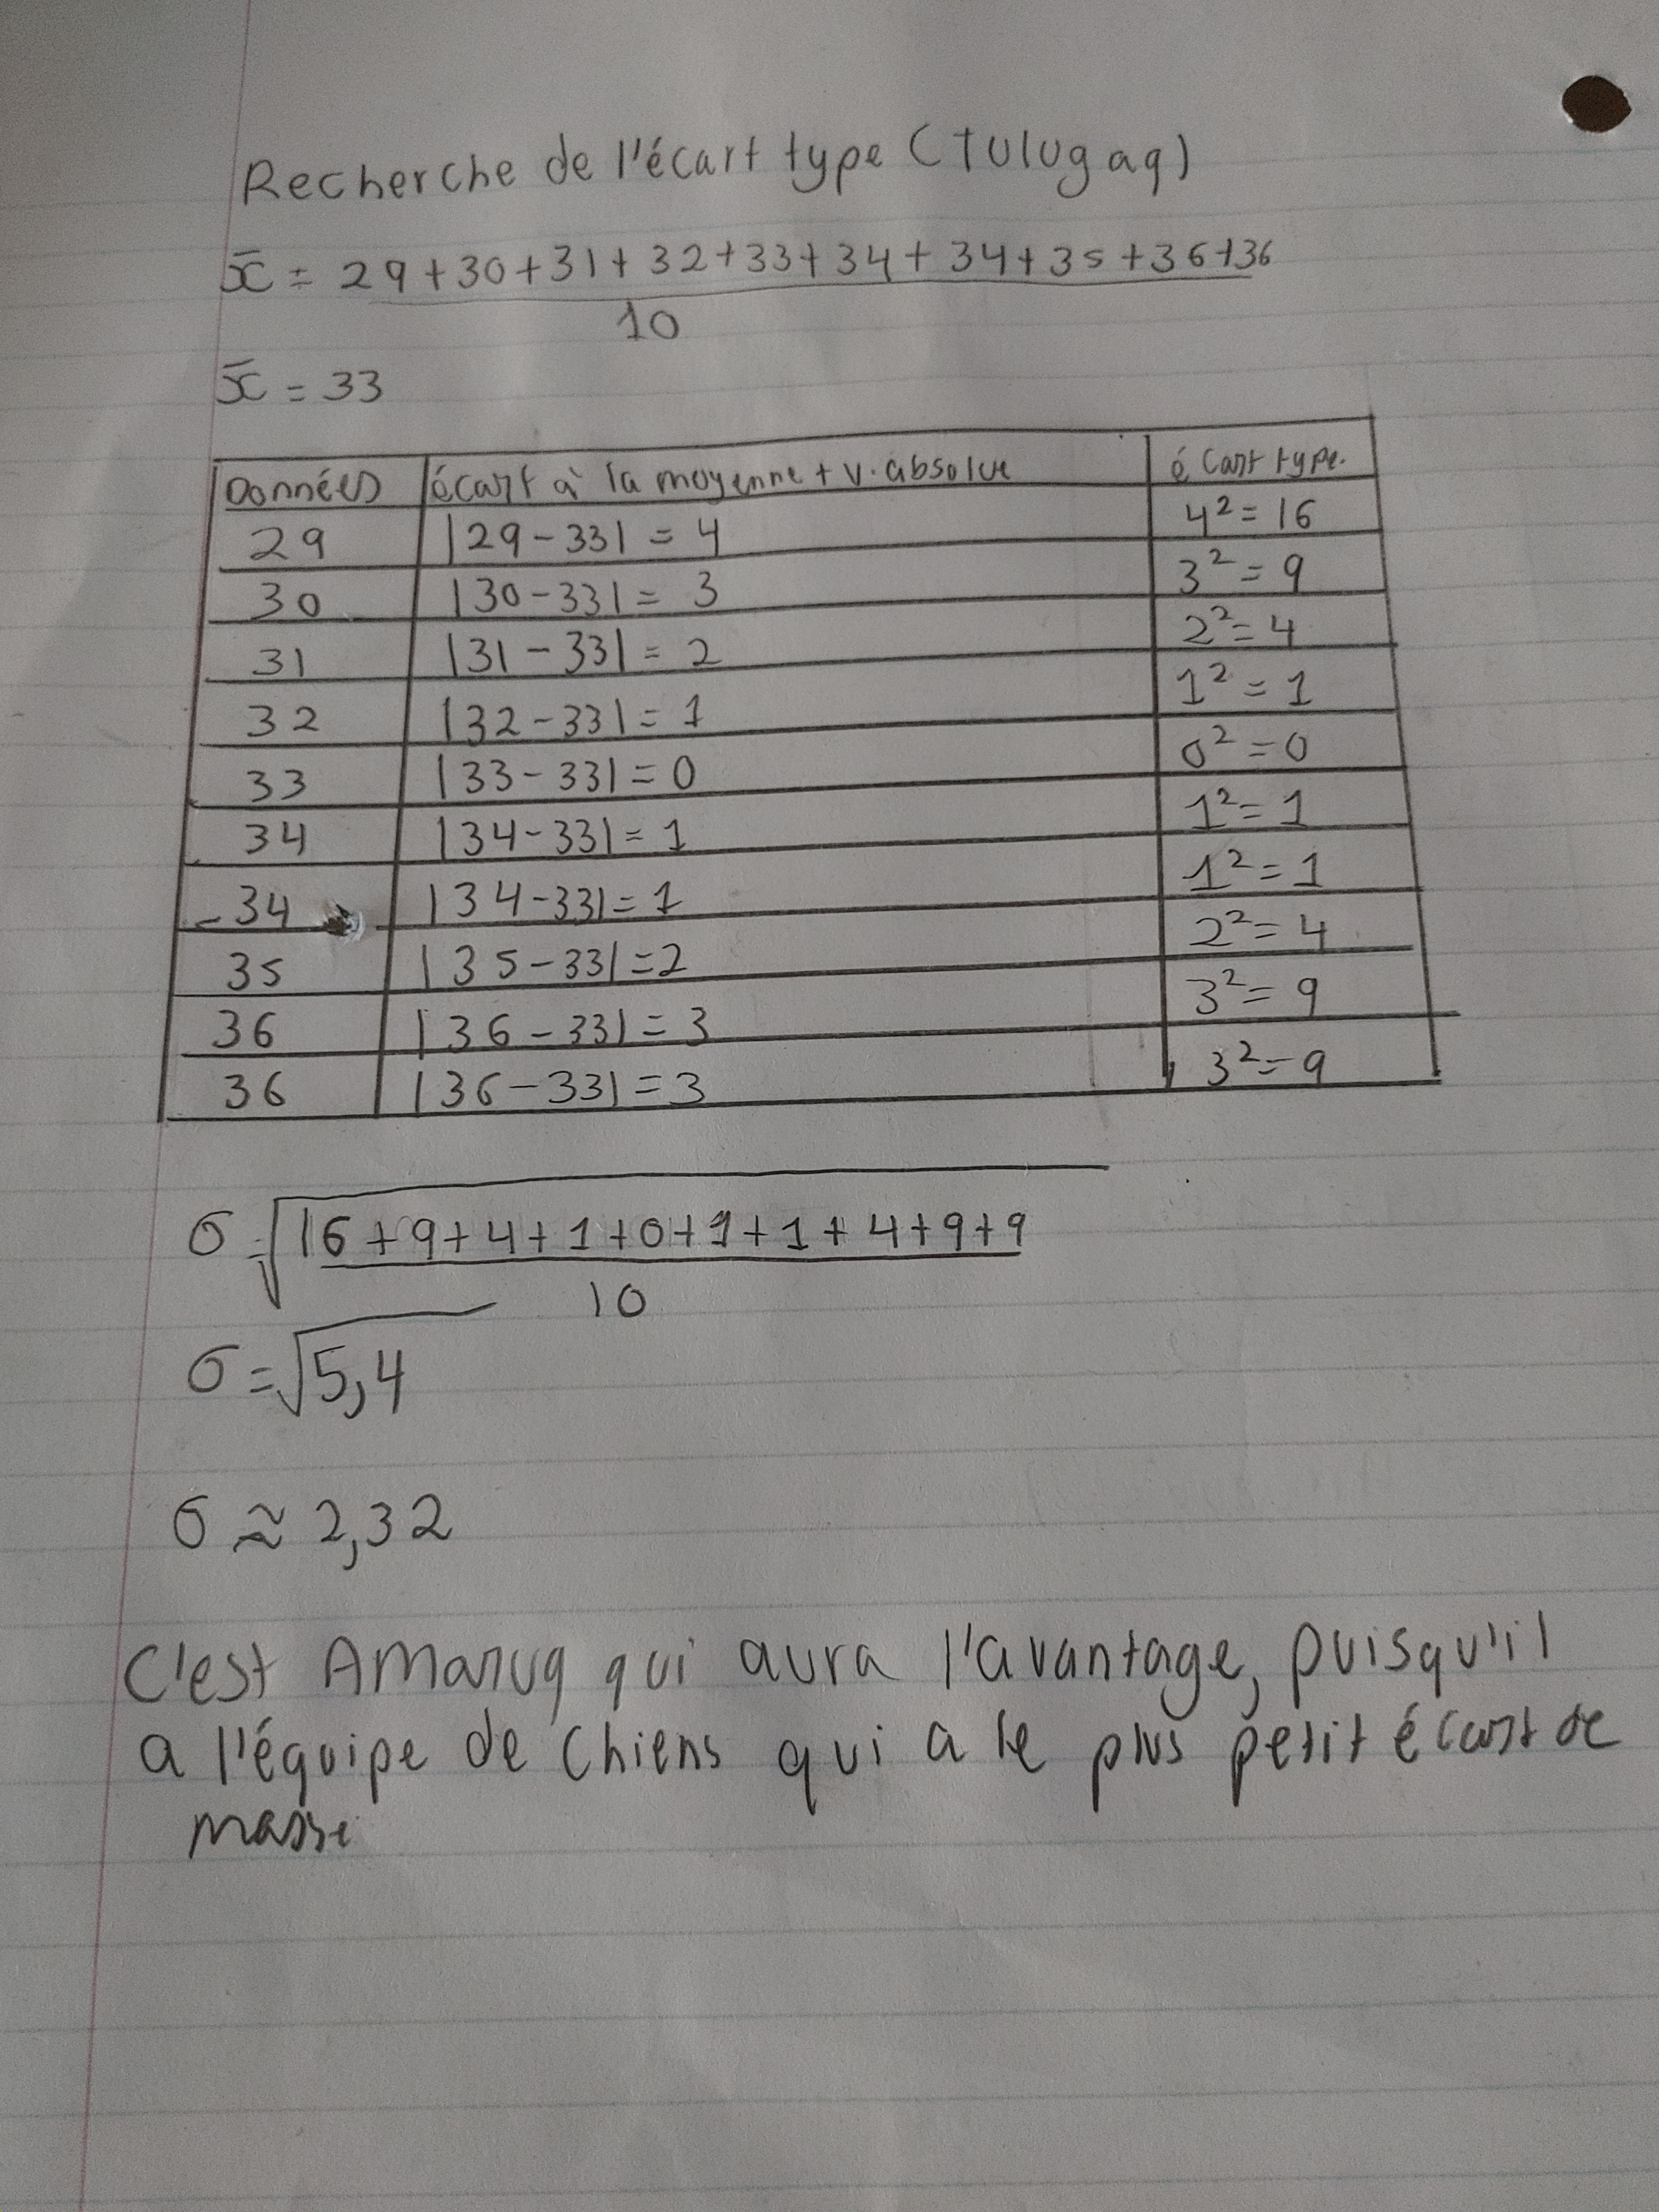 Recherche de l'écart type (Tulugaq)
x̄ = 29+30+31+32+33+34+34+35+36+36
10
x̄ = 33
Données écart à la moyenne + v.absolue écart type.
29 |29-33| = 4 4²=16
30 |30-33| = 3 3²=9
31 |31-33| = 2 2²=4
32 |32-33| = 1 1²=1
33 |33-33| = 0 0²=0
34 |34-33| = 1 1²=1
34 |34-33| = 1 1²=1
35 |35-33| = 2 2²=4
36 |36-33| = 3 3²=9
36 |36-33| = 3 3²=9
σ = √16+9+4+1+0+1+1+4+9+9
10
σ = √5,4
σ ≈ 2,32
C'est Amaruq qui aura l'avantage, puisqu'il
a l'équipe de chiens qui a le plus petit écart de
masse